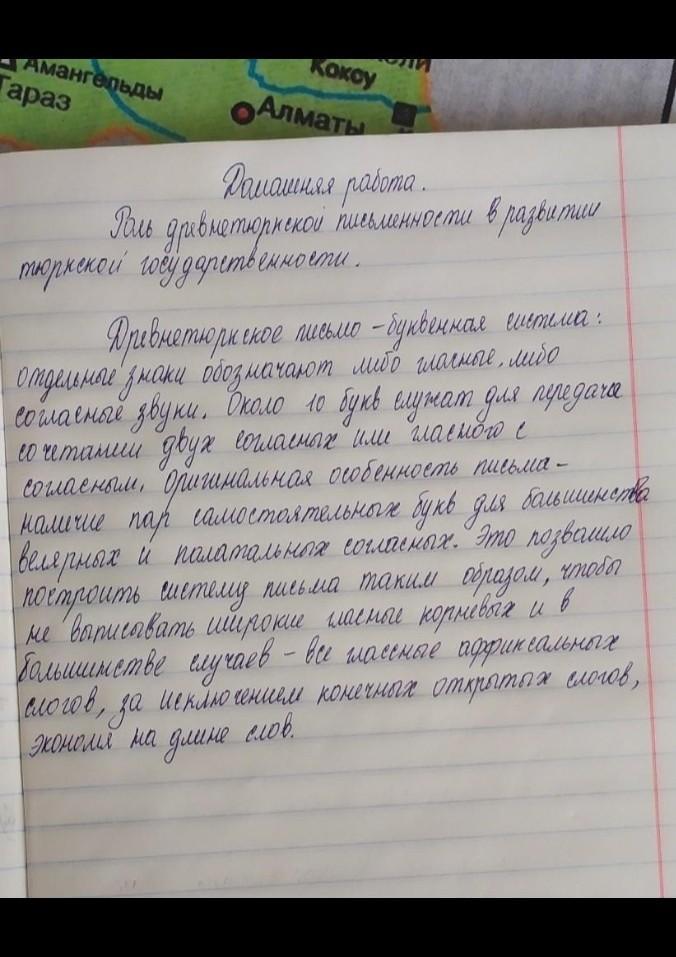 Амангельды
Тараз
Коксу
Алматы
Домашняя работа.
Роль древнетюркской письменности в развитии
тюркской государственности.
Древнетюркское письмо – буквенная система:
отдельные знаки обозначают либо гласные, либо
согласные звуки. Около 10 букв служат для передачи
сочетании двух согласных или гласного с
согласным. Оригинальная особенность письма –
наличие пар самостоятельных букв для большинства
велярных и палатальных согласных. Это позволило
построить систему письма таким образом, чтобы
не выписывать широкие гласные корневых и в
большинстве случаев – все глассные аффиксальных
слогов, за исключением конечных открытых слогов,
экономя на длине слов.